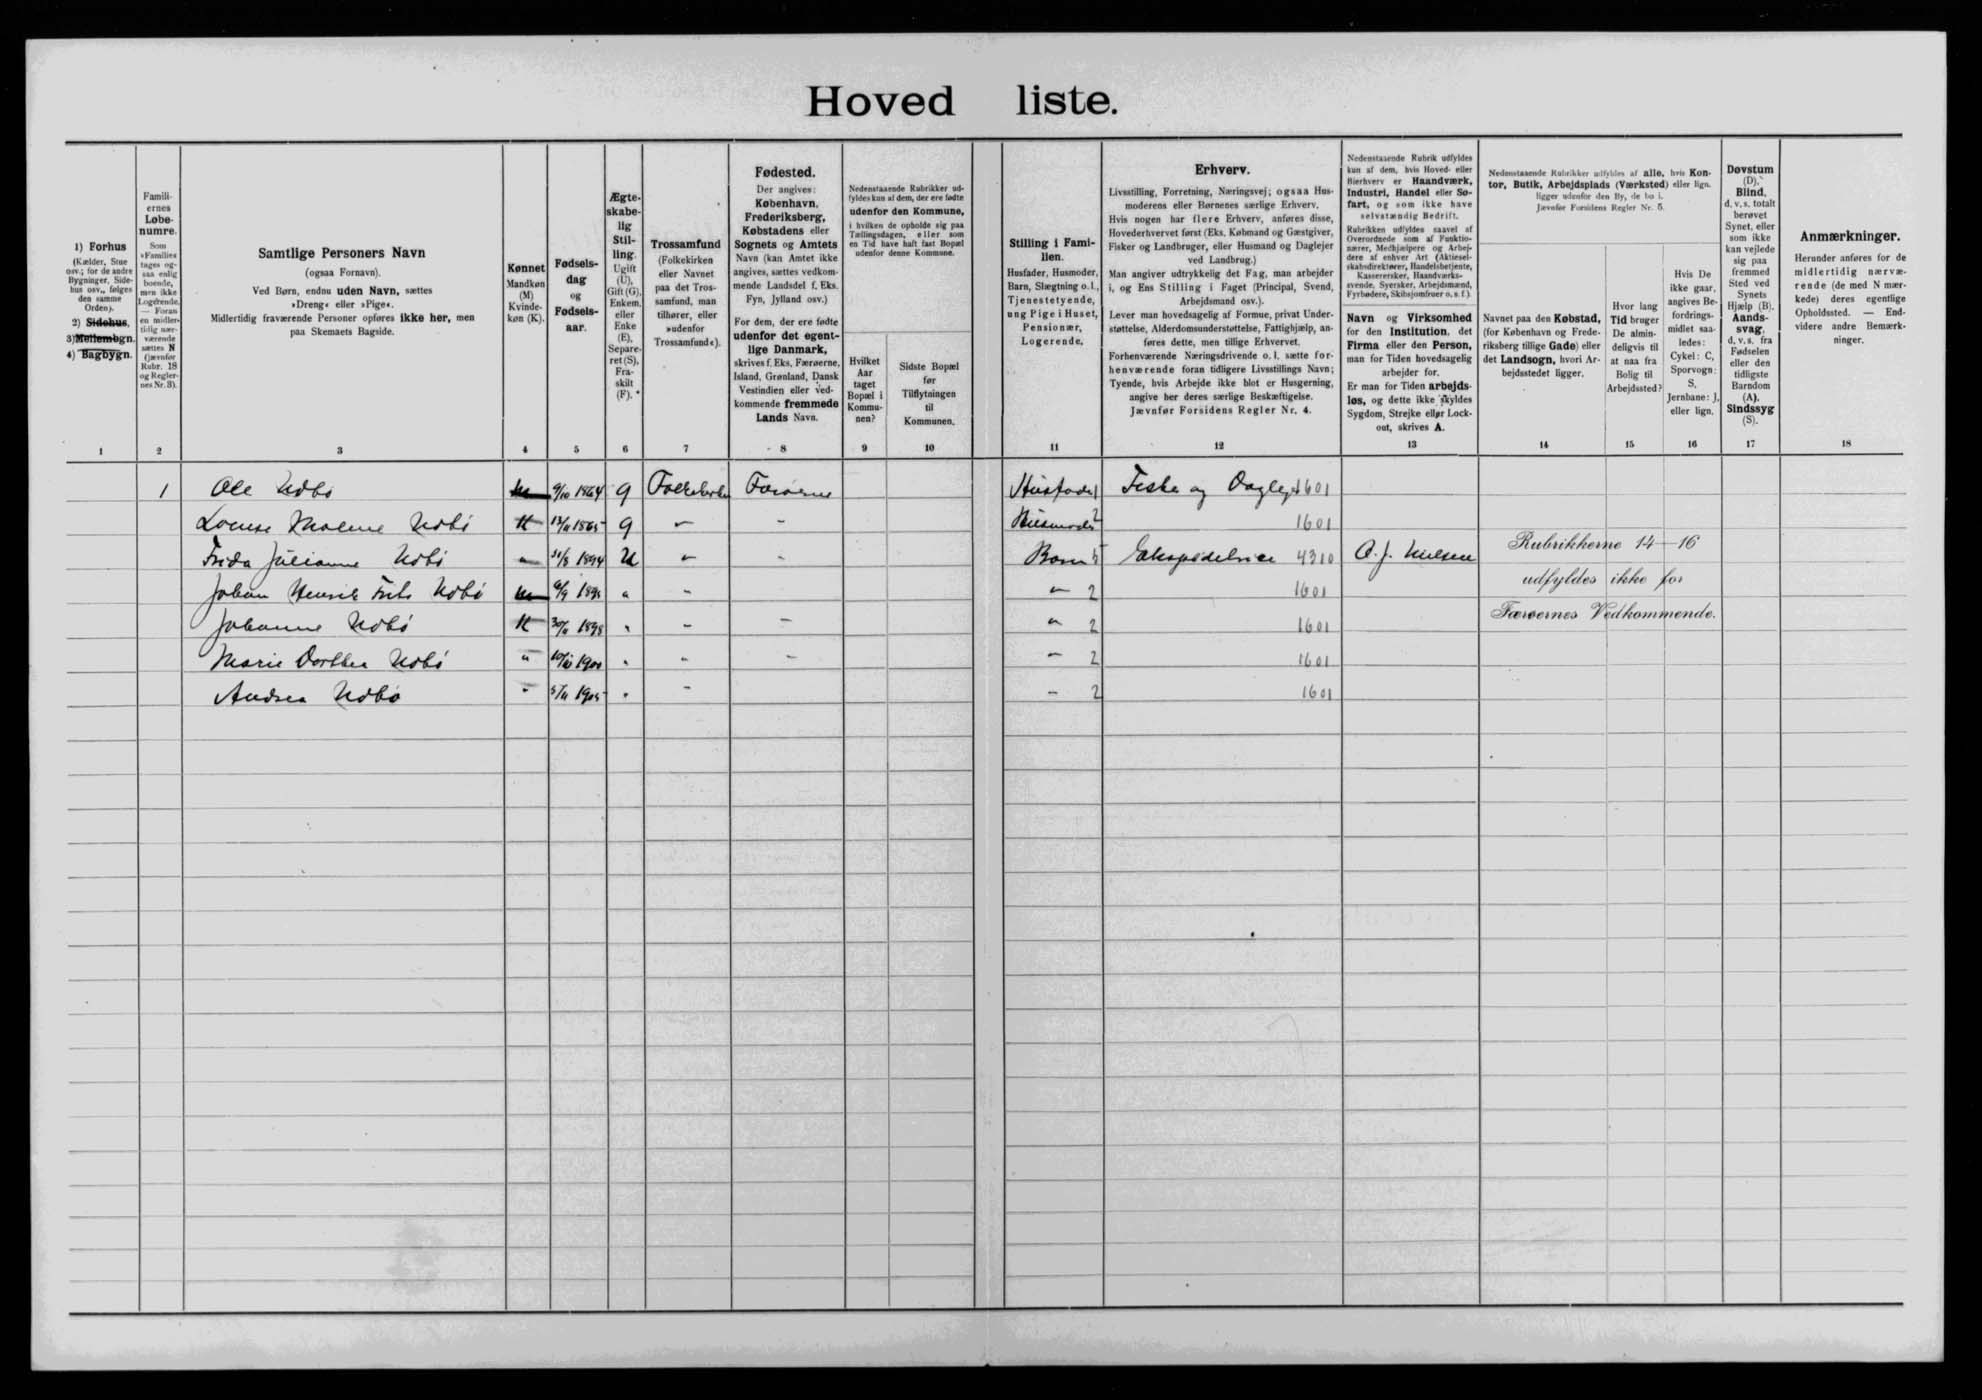 Hoved liste.
1) Forhus
(Kælder, Stue
osv.; for de andre
Bygninger, Side-
hus osv., følges
den samme
Orden).
2) Sidehus,
3) Mellembgn.
4) Bagbygn.
1
Famili-
ernes
Løbe-
numre.
Som
»Familie«
tages og-
saa enlig
boende,
men ikke
Logerende.
— Foran
en midler-
tidig nær-
værende
sættes N
(jævnfør
Rubr. 18
og Regler-
nes Nr. 3).
2
Samtlige Personers Navn
(ogsaa Fornavn).
Ved Børn, endnu uden Navn, sættes
»Dreng« eller »Pige«.
Midlertidig fraværende Personer opføres ikke her, men
paa Skemaets Bagside.
3
Kønnet
Mandkøn
(M)
Kvinde-
køn (K).
4
Fødsels-
dag
og
Fødsels-
aar.
5
Ægte-
skabe-
lig
Stil-
ling.
Ugift
(U),
Gift (G),
Enkem.
eller
Enke
(E),
Separe-
ret (S),
Fra-
skilt
(F).
6
Trossamfund
(Folkekirken
eller Navnet
paa det Tros-
samfund, man
tilhører, eller
»udenfor
Trossamfund«).
7
Fødested.
Der angives:
København,
Frederiksberg,
Købstadens eller
Sognets og Amtets
Navn (kan Amtet ikke
angives, sættes vedkom-
mende Landsdel f. Eks.
Fyn, Jylland osv.)
For dem, der ere fødte
udenfor det egent-
lige Danmark,
skrives f. Eks. Færøerne,
Island, Grønland, Dansk
Vestindien eller ved-
kommende fremmede
Lands Navn.
8
Nedenstaaende Rubrikker ud-
fyldes kun af dem, der ere fødte
udenfor den Kommune,
i hvilken de opholde sig paa
Tællingsdagen, eller som
en Tid have haft fast Bopæl
udenfor denne Kommune.
Hvilket
Aar
taget
Bopæl i
Kommu-
nen?
9
Sidste Bopæl
før
Tilflytningen
til
Kommunen.
10
Stilling i Fami-
lien.
Husfader, Husmoder,
Barn, Slægtning o.l.,
Tjenestetyende,
ung Pige i Huset,
Pensionær,
Logerende.
11
Erhverv.
Livsstilling, Forretning, Næringsvej; ogsaa Hus-
moderens eller Børnenes særlige Erhverv.
Hvis nogen har flere Erhverv, anføres disse,
Hovederhvervet først (Eks. Købmand og Gæstgiver,
Fisker og Landbruger, eller Husmand og Daglejer
ved Landbrug.)
Man angiver udtrykkelig det Fag, man arbejder
i, og Ens Stilling i Faget (Principal, Svend,
Arbejdsmand osv.).
Lever man hovedsagelig af Formue, privat Under-
støttelse, Alderdomsunderstøttelse, Fattighjælp, an-
føres dette, men tillige Erhvervet.
Forhenværende Næringsdrivende o.l. sætte for-
henværende foran tidligere Livsstillings Navn;
Tyende, hvis Arbejde ikke blot er Husgerning,
angive her deres særlige Beskæftigelse.
Jævnfør Forsidens Regler Nr. 4.
12
Nedenstaaende Rubrik udfyldes
kun af dem, hvis Hoved- eller
Bierhverv er Haandværk,
Industri, Handel eller Sø-
fart, og som ikke have
selvstændig Bedrift.
Rubrikken udfyldes saavel af
Overordnede som af Funktio-
nærer, Medhjælpere og Arbej-
dere af enhver Art (Aktiesel-
skabsdirektører, Handelsbetjente,
Kassererske, Haandværks-
svende, Syersker, Arbejdsmænd,
Fyrbødere, Skibsjomfruer o.s.f.).
Navn og Virksomhed
for den Institution, det
Firma eller den Person,
man for Tiden hovedsagelig
arbejder for.
Er man for Tiden arbejds-
løs, og dette ikke skyldes
Sygdom, Strejke eller Lock-
out, skrives A.
13
Nedenstaaende Rubrikker udfyldes af alle, hvis Kon-
tor, Butik, Arbejdsplads (Værksted) eller lign.
ligger udenfor den By, de bo i.
Jævnfør Forsidens Regler Nr. 5.
Navnet paa den Købstad,
(for København og Frede-
riksberg tillige Gade) eller
det Landsogn, hvori Ar-
bejdsstedet ligger.
14
Hvor lang
Tid bruger
De almin-
deligvis til
at naa fra
Bolig til
Arbejdssted?
15
Hvis De
ikke gaar,
angives Be-
fordrings-
midlet saa-
ledes:
Cykel: C,
Sporvogn:
S,
Jernbane: J,
eller lign.
16
Døvstum
(D).
Blind,
d. v. s. totalt
berøvet
Synet, eller
som ikke
kan vejlede
sig paa
fremmed
Sted ved
Synets
Hjælp (B).
Aands-
svag,
d. v. s. fra
Fødselen
eller den
tidligste
Barndom
(A).
Sindssyg
(S).
17
Anmærkninger.
Herunder anføres for de
midlertidig nærvæ-
rende (de med N mær-
kede) deres egentlige
Opholdssted. — End-
videre andre Bemærk-
ninger.
18
1 Ole Udbø M 9/10 1864 g Folkekirken Færøerne Husfader 1 Fisker og Daglejer 1601
Lovise Malene Udbø K 13/11 1865 g " " Husmoder 2 1601
Frida Julianne Udbø " 31/8 1894 U " " Barn 5 Ekspeditrice 4310 O. J. Nielsen
Johan Henrik Frits Udbø M 6/9 1895 " " " 2 1601
Johanne Udbø K 30/11 1898 " " " " 2 1601
Marie Dorthea Udbø " 10/12 1900 " " " " 2 1601
Andrea Udbø " 5/11 1905 " " " 2 1601
Rubrikkerne 14—16
udfyldes ikke for
Færøernes Vedkommende.